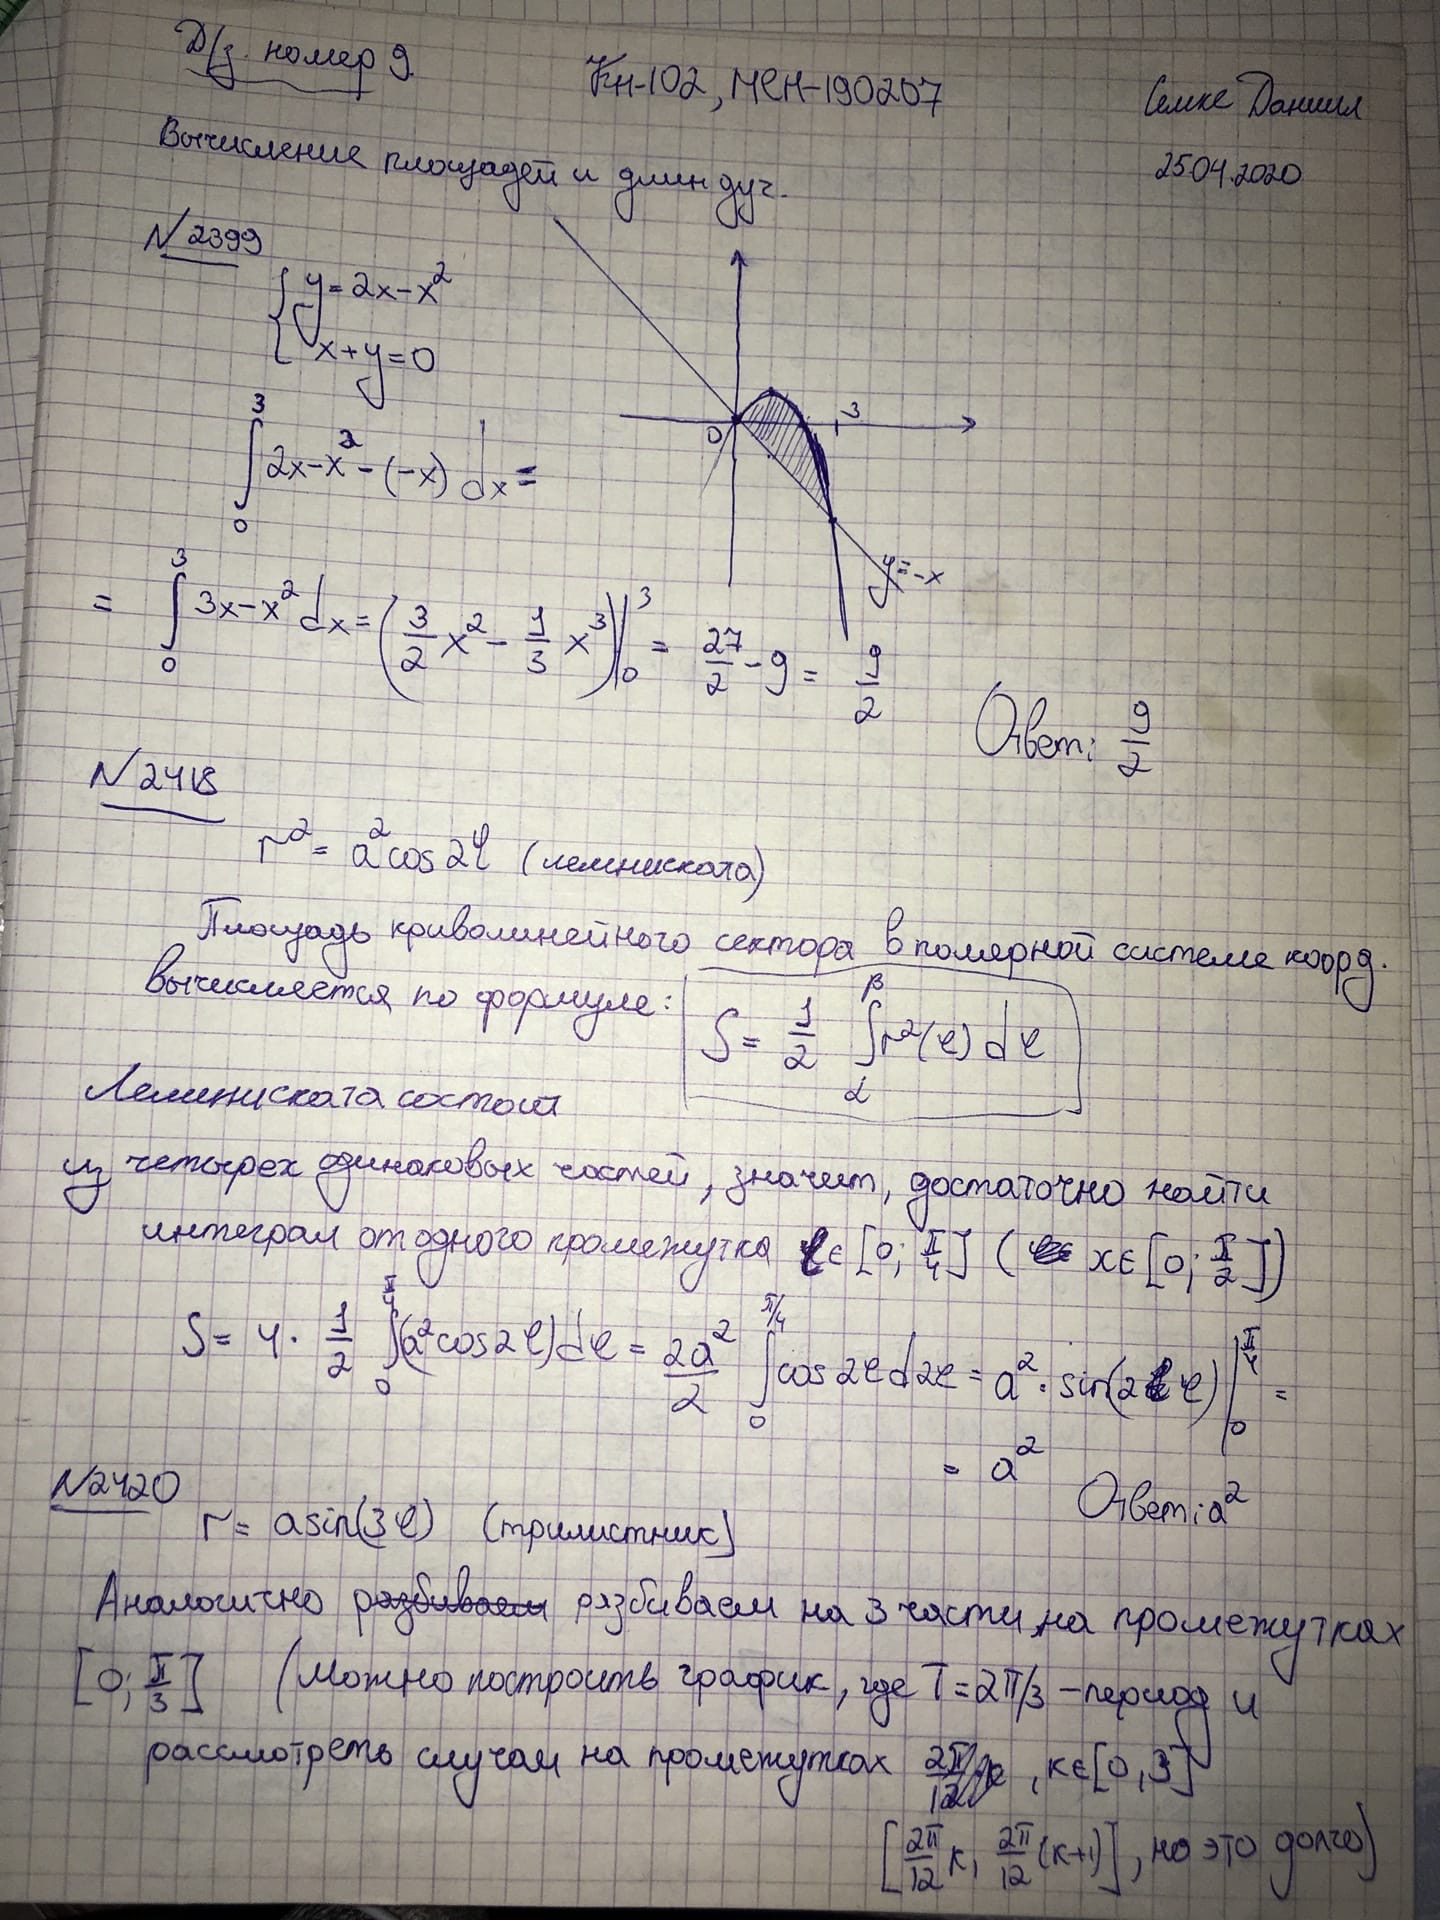 Д/з. номер 9.
Кн-102, МЕН-190207
Семке Даниил
25.04.2020
Вычисление площадей и длин дуг.
№2399
{ y = 2x - x²
x + y = 0
∫₀³ 2x - x² - (-x) dx =
0
3
y = -x
= ∫₀³ 3x - x² dx = (3/2 x² - 1/3 x³)|₀³ = 27/2 - 9 = 9/2
Ответ: 9/2
№2418
r² = a² cos 2φ (лемниската)
Площадь криволинейного сектора в полярной системе коорд.
вычисляется по формуле: S = 1/2 ∫_α^β r²(φ) dφ
Лемниската состоит
из четырех одинаковых частей, значит, достаточно найти
интеграл от одного промежутка φ ∈ [0; π/4] ( x ∈ [0; π/2])
S = 4 · 1/2 ∫₀^{π/4} (a² cos 2φ) dφ = 2a²/2 ∫₀^{π/4} cos 2φ d2φ = a² · sin(2φ)|₀^{π/4} =
= a²
Ответ: a²
№2420
r = a sin(3φ) (трилистник)
Аналогично разбиваем разбиваем на 3 части, на промежутках
[0; π/3] (Можно построить график, где T = 2π/3 - период и
рассмотреть случаи на промежутках 2π/12 , k ∈ [0, 3]
[2π/12 k, 2π/12 (k+1)], но это долго)